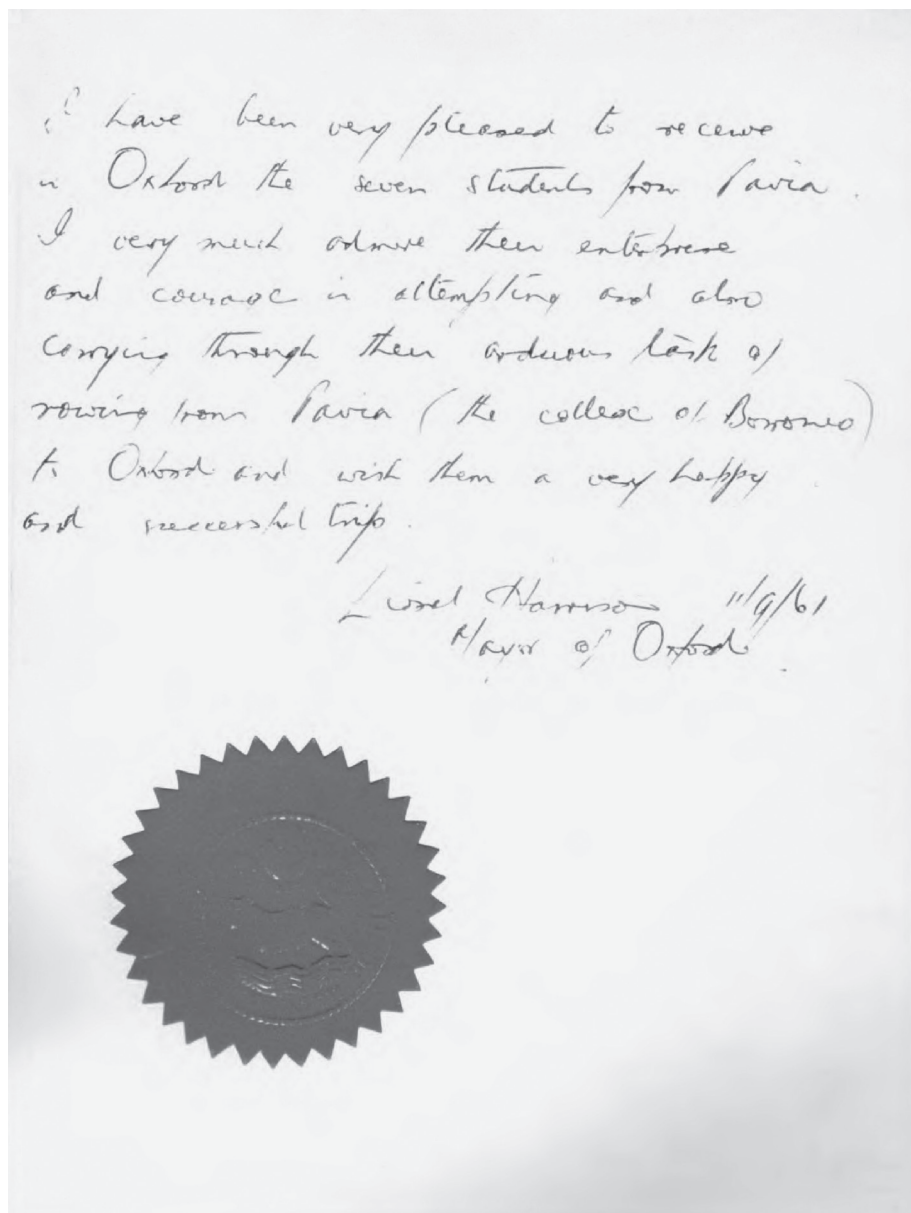 I have been very pleased to receive
in Oxford the seven students from Pavia.
I very much admire their enterprise
and courage in attempting and also
carrying through their arduous task of
rowing from Pavia (the college of Borromeo)
to Oxford and wish them a very happy
and successful trip.
Lionel Harrison 11/9/61
Mayor of Oxford.